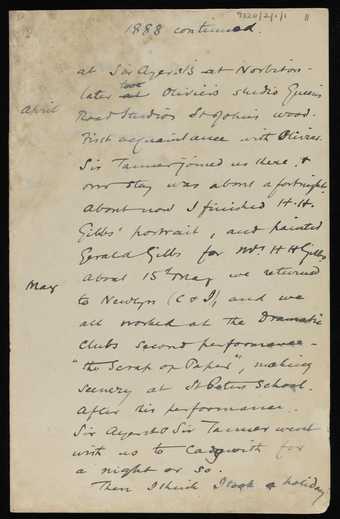 9220/2/1/1 8
1888 continued.
at Sir Ayerst's at Norbiton -
later took Olivier's studio Queen's
April Road Studios St John's wood.
First acquaintance with Olivier.
Sir Tanner joined us there, &
our stay was about a fortnight.
About now I finished H.H.
Gibbs' portrait, and painted
Gerald Gibbs for Mrs H H Gibbs
About 15th May we returned
May to Newlyn (C & I) and we
all worked at the Dramatic
Clubs second performance -
"the Scrap of Paper", making
scenery at St Peters School.
After this performance.
Sir Ayerst & Sir Tanner went
with us to Cadgwith for
a night or so.
Then I think I took a holiday